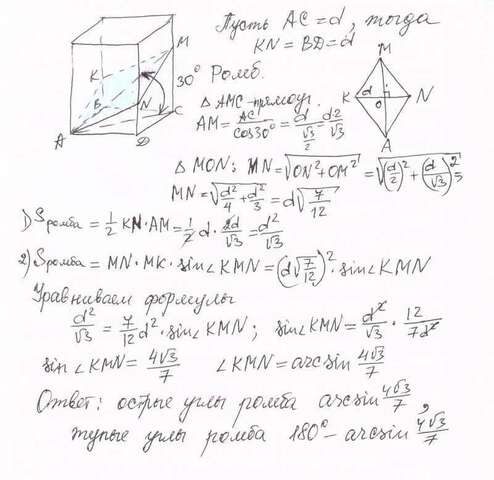 Пусть AC = d, тогда
KN = BD = d
30° Ромб.
K M B N C A D
M K d O N A
△ AMC - прямоуг.
AM = AC/cos30° = d/(√3/2) = 2d/√3
△ MON; MN = √(ON² + OM²) = √((d/2)² + (d/√3)²)
MN = √(d²/4 + d²/3) = d√(7/12)
1) Sромба = 1/2 KN · AM = 1/2 d · 2d/√3 = d²/√3
2) Sромба = MN · MK · sin∠KMN = (d√(7/12))² · sin∠KMN
Уравниваем формулы
d²/√3 = 7/12 d² · sin∠KMN; sin∠KMN = d²/√3 · 12/7d²
sin∠KMN = 4√3/7 ∠KMN = arcsin 4√3/7
Ответ: острые углы ромба arcsin 4√3/7,
тупые углы ромба 180° - arcsin 4√3/7